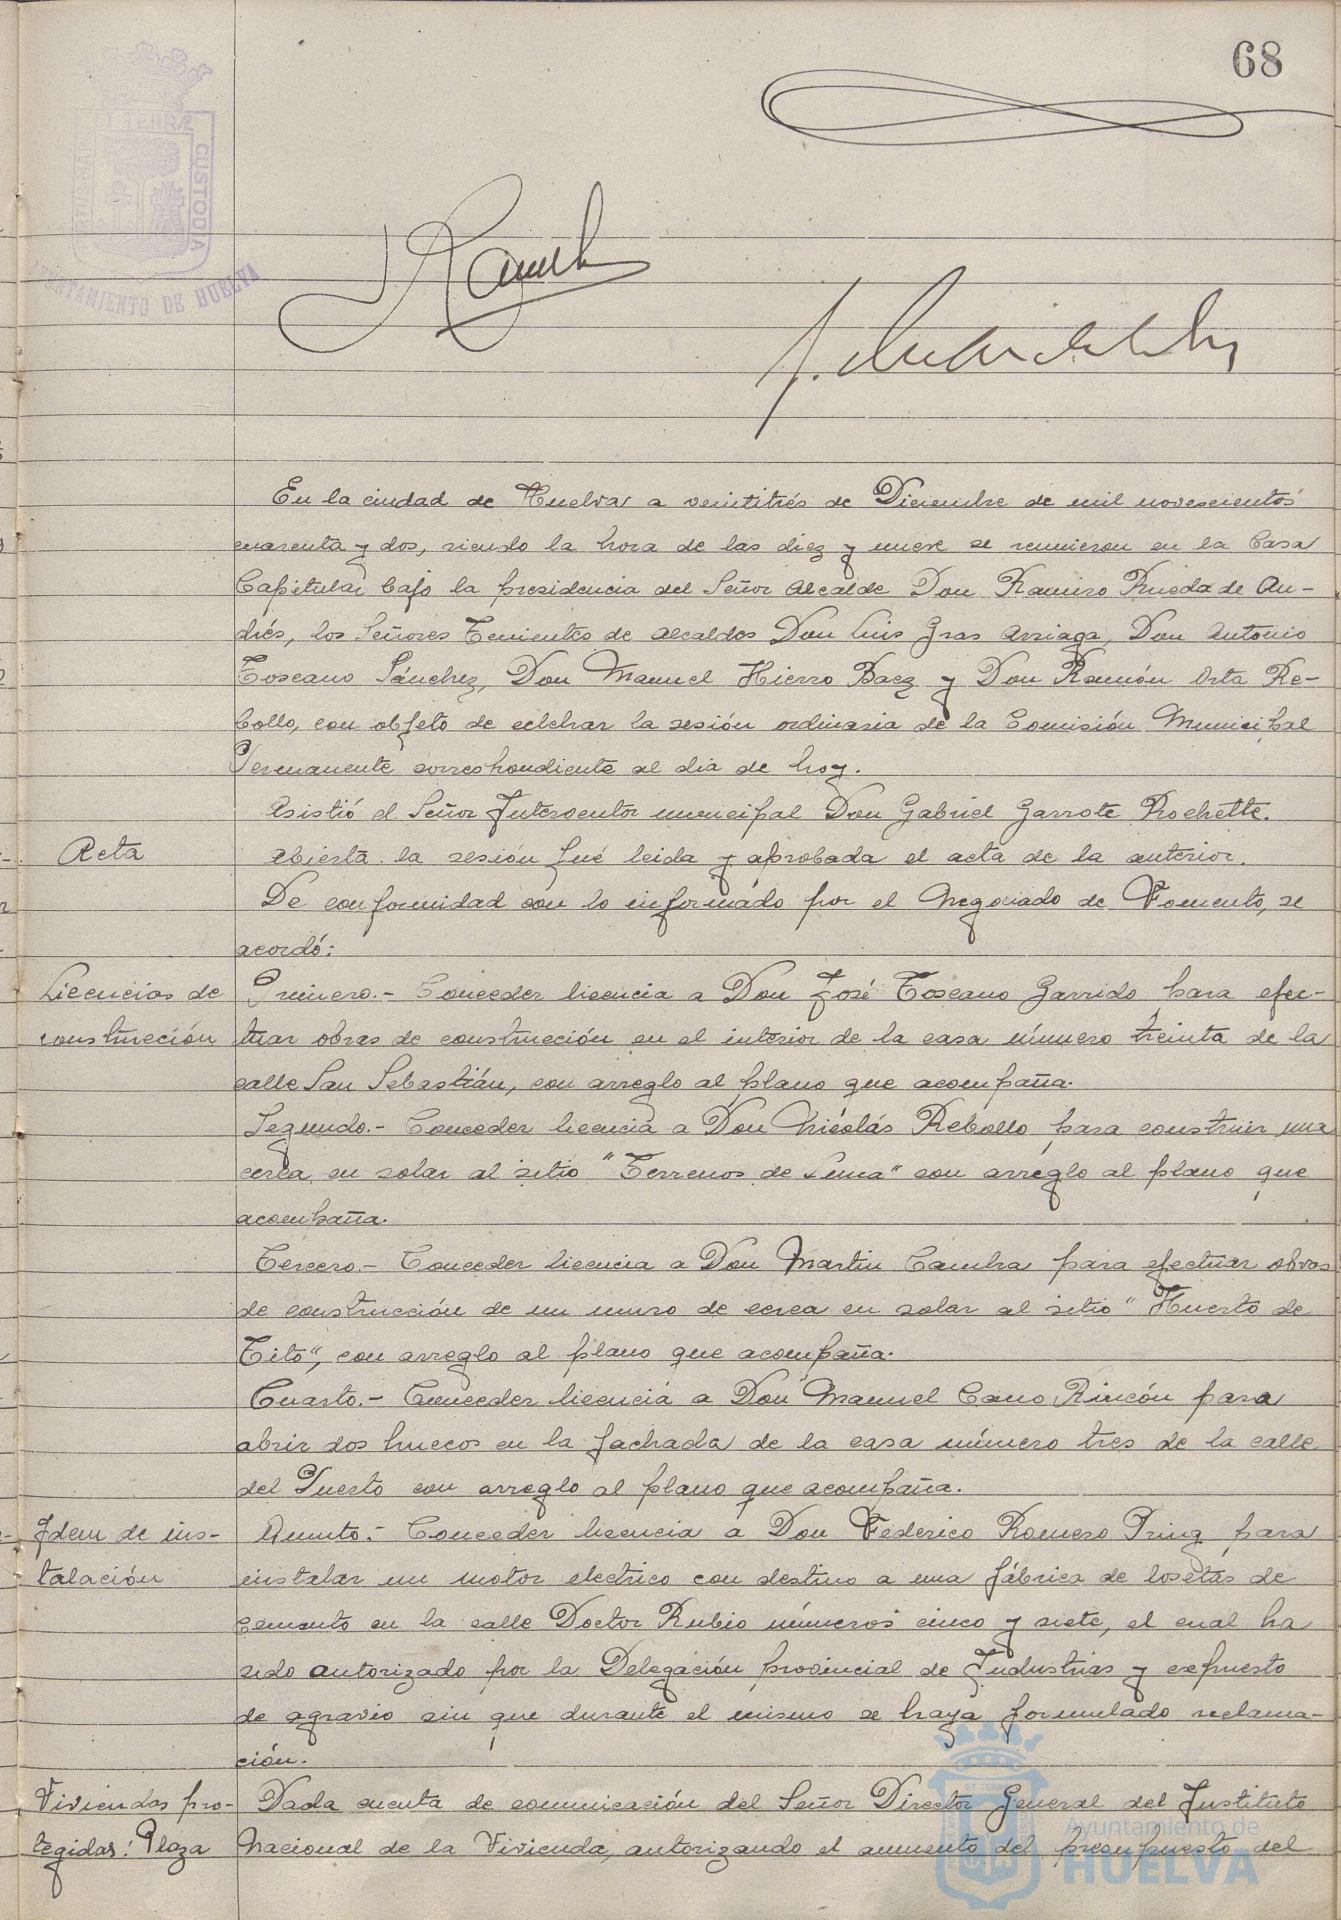 68
ET TERRÆ
CUSTODIA
AYUNTAMIENTO DE HUELVA
En la ciudad de Huelva a veintitrés de Diciembre de mil novescientos
cuarenta y dos, siendo la hora de las diez y nueve se reunieron en la Casa
Capitular bajo la presidencia del Señor Alcalde Don Ramiro Rueda de An-
drés, los Señores Tenientes de Alcaldes Don Luis Gras Arriaga, Don Antonio
Toscano Sánchez, Don Manuel Hierro Baez y Don Ramón Orta Re-
bollo, con objeto de celebrar la sesión ordinaria de la Comisión Municipal
Permanente correspondiente al dia de hoy.
Asistió el Señor Interventor municipal Don Gabriel Garrote Rochette.
Acta
Abierta la sesión fué leida y aprobada el acta de la anterior.
De conformidad con lo informado por el Negociado de Fomento, se
acordó:
Licencias de
construcción
Primero.- Conceder licencia a Don José Toscano Garrido para efec-
tuar obras de construcción en el interior de la casa número treinta de la
calle San Sebastián, con arreglo al plano que acompaña.
Segundo.- Conceder licencia a Don Nicolás Rebollo para construir una
cerca en solar al sitio "Terrenos de Luna" con arreglo al plano que
acompaña.
Tercero.- Conceder licencia a Don Martin Cambra para efectuar obras
de construcción de un muro de cerca en solar al sitio "Huerto de
Tito", con arreglo al plano que acompaña.
Cuarto.- Conceder licencia a Don Manuel Cano Rincón para
abrir dos huecos en la fachada de la casa número tres de la calle
del Puerto con arreglo al plano que acompaña.
Idem de ins-
talación
Quinto.- Conceder licencia a Don Federico Romero Pring para
instalar un motor electrico con destino a una fábrica de losetas de
cemento en la calle Doctor Rubio números cinco y siete, el cual ha
sido autorizado por la Delegación provincial de Industrias y expuesto
de agravio sin que durante el mismo se haya formulado reclama-
ción.
Viviendas pro-
tegidas: Plaza
Dada cuenta de comunicación del Señor Director General del Instituto
Nacional de la Vivienda, autorizando el aumento del presupuesto del
Ayuntamiento de
HUELVA